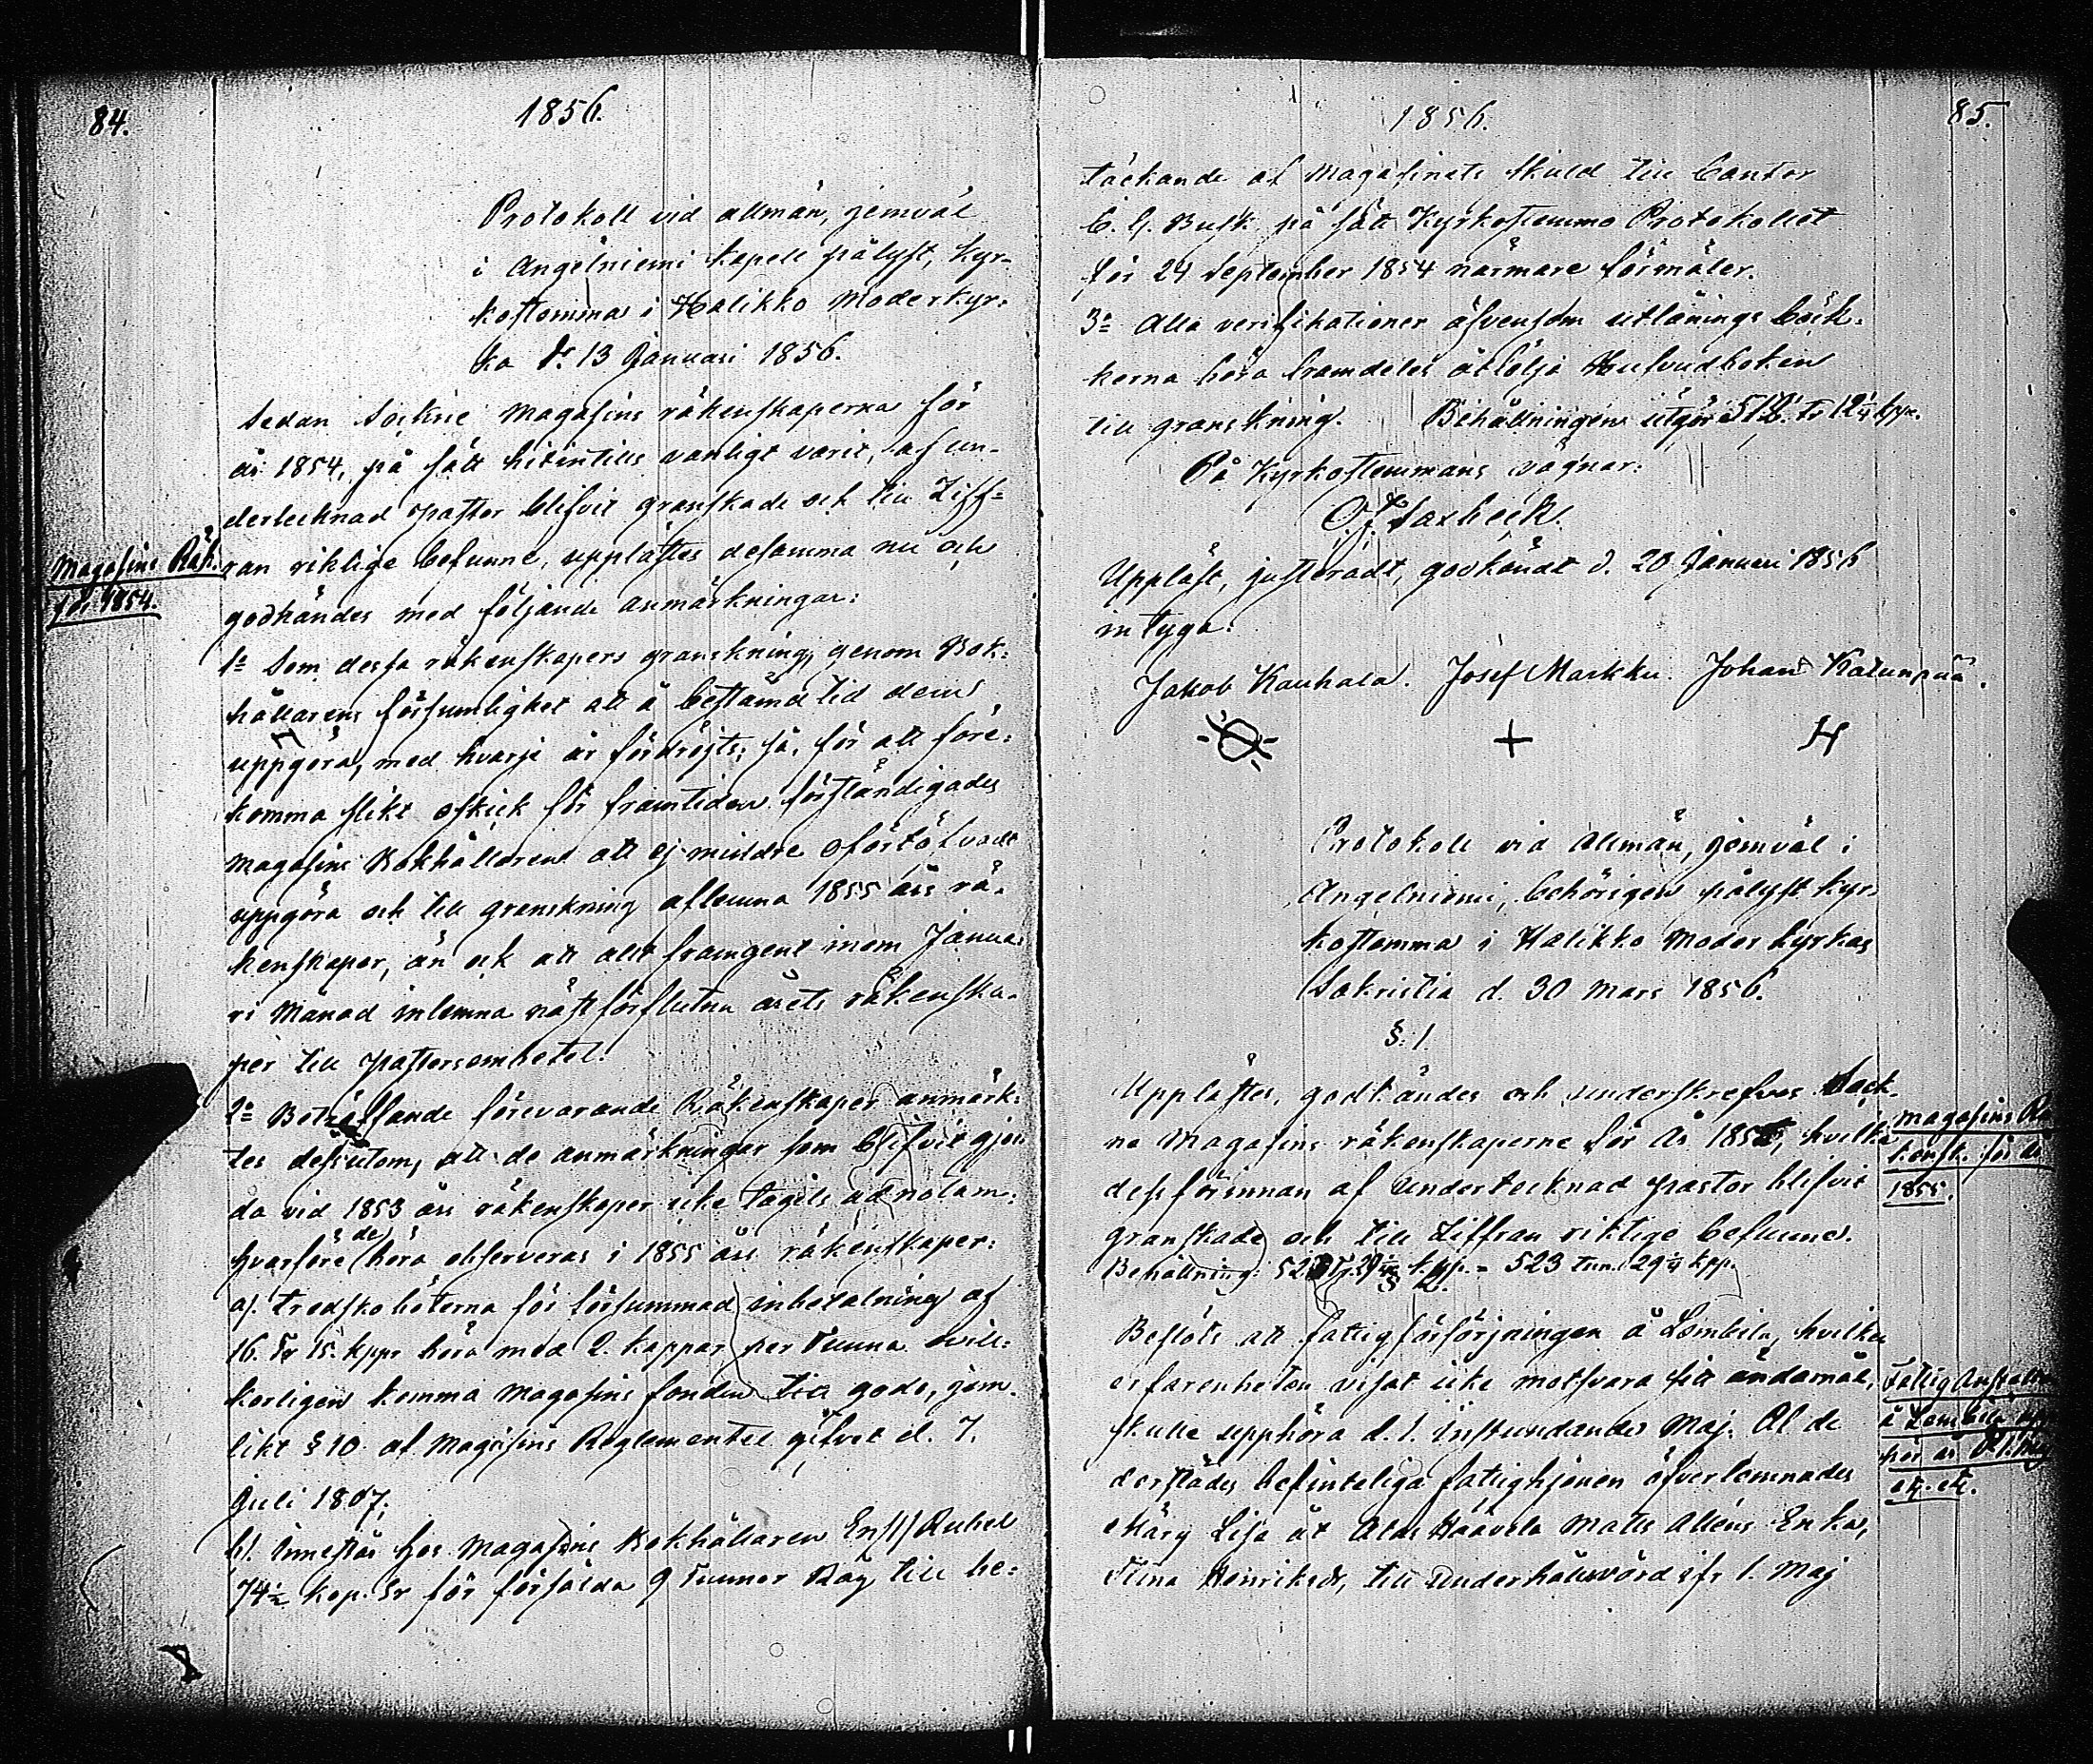 84.
1856.
Protokoll vid allmän, jemväl
i Angelniemi kapell pålyst, Kyr-
kostämma i Halikko Moderkyr-
ka d. 13 Januari 1856.
Sedan Sockne Magasins räkenskaperna för
år 1854, på sätt hitintills vanligt varit, af un-
dertecknad Pastor blifvit granskade och till Ziff-
ran riktige befunne, upplästes desamma nu och
godkändes med följande anmärkningar:
Magasins Räk.
för 1854.
1o Som dessa räkenskapers granskning, genom Bok-
hållarens försumlighet att å bestämd tid dem
uppgöra, med hvarje år fördröjts; så, för att före-
komma slikt oskick för framtiden förständigades
Magasins Bokhållaren att ej mindre oförtöfvadt
uppgöra och till granskning aflemna 1855 års rä-
kenskaper, än ock att allt framgent inom Janua-
ri Månad inlemna näst förflutna årets räkenska-
per till Pastorsembetet.
2o Beträffande förevarande Räkenskaper anmärk-
tes dessutom, att de anmärkningar som blifvit gjor
da vid 1853 års räkenskaper icke tagits ad notam;
hvarföre de böra observeras i 1855 års räkenskaper:
a/. Tredskoböterna för försummad inbetalning af
16. Tr 15. kppr böra med 2. kappar per Tunna ovill-
korligen komma Magasins fonden till godo, jem-
likt § 10 af Magasins Reglementet gifvet d. 7.
Juli 1807.
b/. Innestår hos Magasins Bokhållaren Ruhel
74½ kop. Sr för försålda 9 Tunnor Råg till be-
1856.
85.
täckande af Magasinets skuld till Cantor
C. G. Busk på sätt Kyrkostemmo Protokollet
för 24 September 1854 närmare förmäler.
3o Alla verifikationer äfvensom utlånings böck-
kerna böra framdeles åtfölja Hufvudboken
till granskning. Behållningen utgör 512. Tr 12¼ kpr.
På Kyrkostemmans vägnar:
O. F. Saxbeck.
Uppläst, justeradt, godkändt d. 20 Januari 1856
intyga:
Jakob Kauhala. Josef Markku. Johan Katunpää.
+ H
Protokoll vid Allmän, jemväl i
Angelniemi, behörigen pålyst Kyr-
kostemma i Halikko Moderkyrkas
Sakristia d. 30 Mars 1856.
§. 1.
Upplästes, godkändes och underskrefvos Sock-
ne Magasins räkenskaperne för År 1855, hvilka
dessförinnan af Undertecknad Pastor blifvit
granskade och till Ziffran riktige befunne.
Magasins Rä
kensk. för år
1855.
Behållning: kpp. = 523 tun. 29¼ kpp.
§ 2.
Beslöts att fattigförsörjningen å Lembila, hvilken
erfarenheten visat icke motsvara sitt ändamål,
skulle upphöra d. 1. instundande Maj. Af de
derstädes befinteliga fattighjonen öfverlemnades
Fattig Anstalten
å Lembila upp
hör d. 1. Maj
etc. etc.
Lisa åt Alas Haavela Matts Alléns Enka,
Stina Henriksdr, till Underhåll vård ifr. 1. Maj